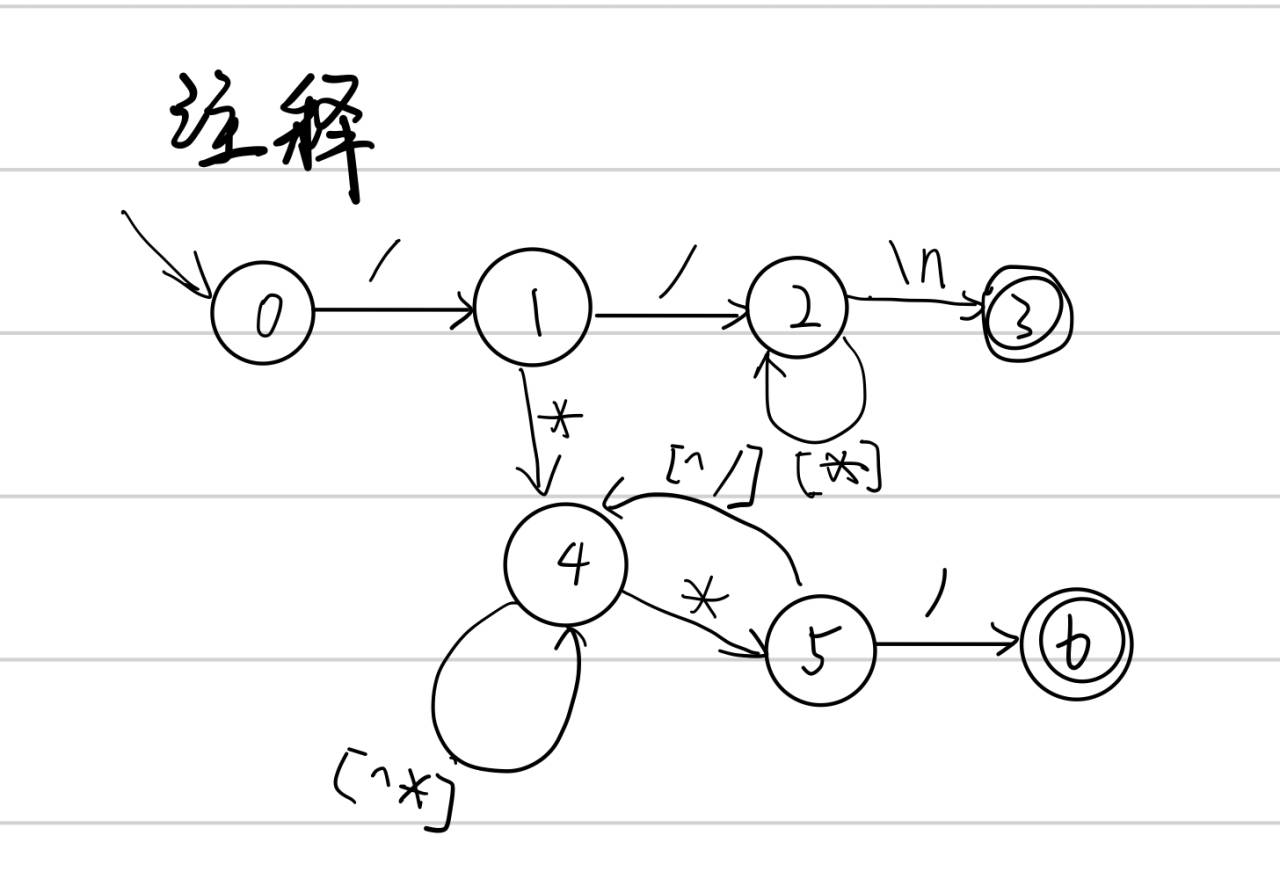 注释
/ / \n
0 1 2 3
*
[^/] [*]
4 *
5 / 6
[^*]